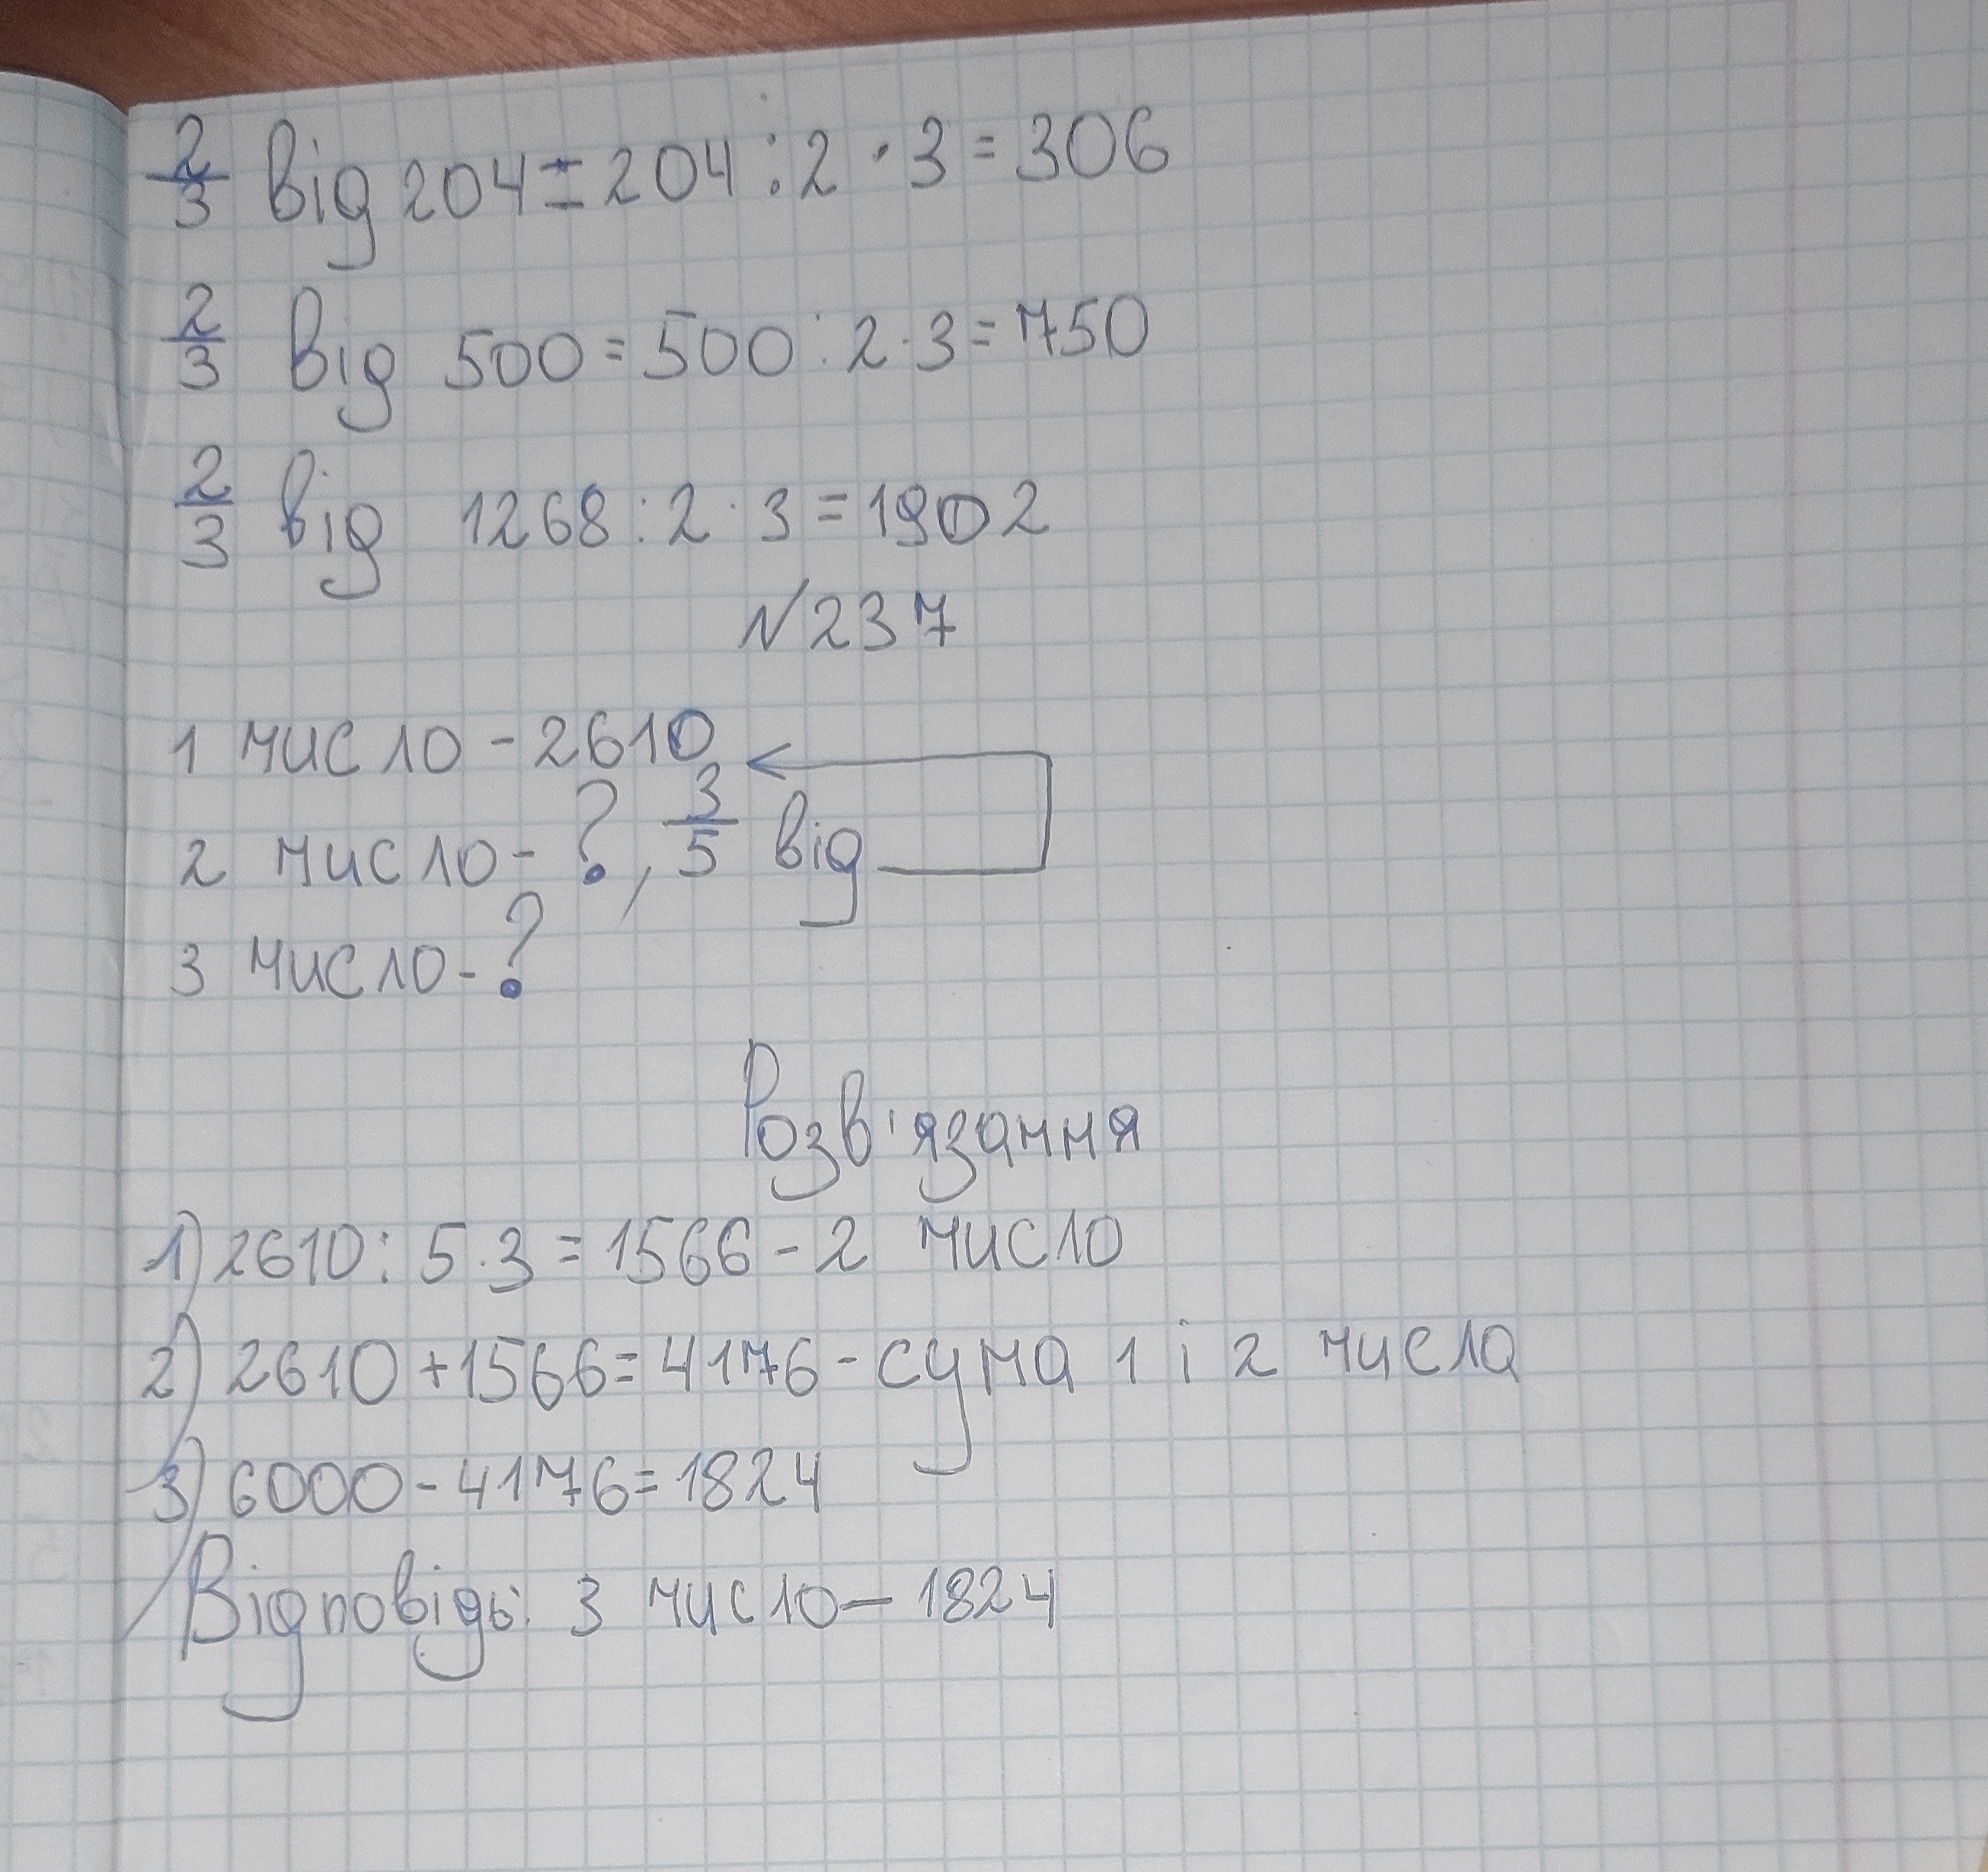 2/3 від 204 = 204 : 2 · 3 = 306
2/3 від 500 = 500 : 2 · 3 = 750
2/3 від 1268 : 2 · 3 = 1902
N237
1 число - 2610
2 число - ?, 3/5 від
3 число - ?
Розв'язання
1) 2610 : 5 · 3 = 1566 - 2 число
2) 2610 + 1566 = 4176 - сума 1 і 2 числа
3) 6000 - 4176 = 1824
Відповідь: 3 число — 1824